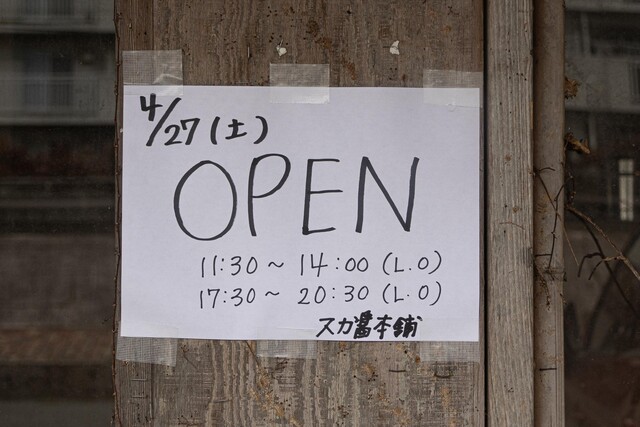 4/27(土)
OPEN
11:30〜14:00(L.O)
17:30〜20:30(L.O)
スガ醤本舗